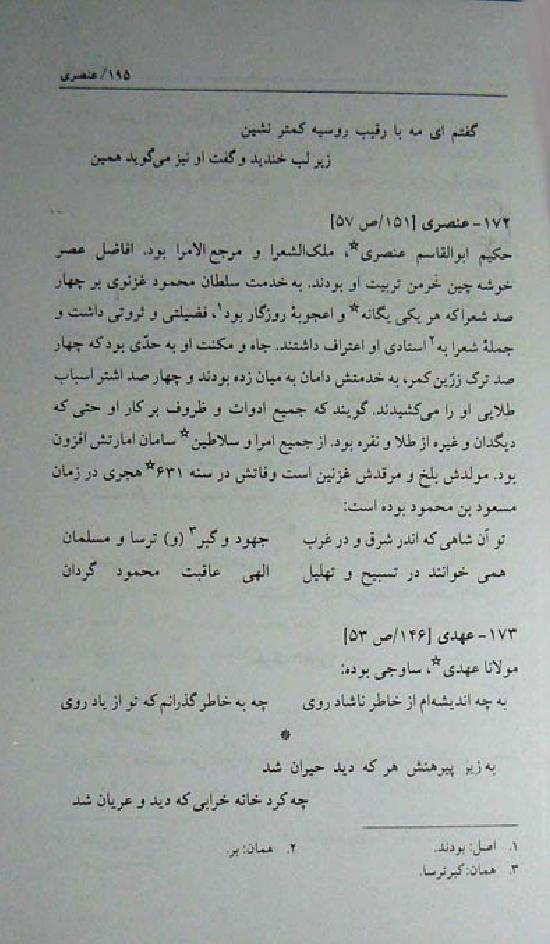 ۱۹۵/ عنصری
گفتم ای مه با رقیب روسیه کمتر نشین
زیر لب خندید و گفت او نیز می‌گوید همین
۱۷۲- عنصری [۱۵۱/ص ۵۷]
حکیم ابوالقاسم عنصری☆، ملک‌الشعرا و مرجع الامرا بود. افاضل عصر
خوشه چین خَرمن تربیت او بودند. به خدمت سلطان محمود غزنوی بر چهار
صد شعرا که هر یکی یگانه☆ و اعجوبهٔ روزگار بود۱، فضیلتی و ثروتی داشت و
جملهٔ شعرا به۲ استادی او اعتراف داشتند. جاه و مکنت او به حدّی بود که چهار
صد ترک زرّین کمر، به خدمتش دامان به میان زده بودند و چهار صد اشتر اسباب
طلایی او را می‌کشیدند. گویند که جمیع ادوات و ظروف بر کار او حتی که
دیگدان و غیره از طلا و نقره بود. از جمیع امرا و سلاطین☆ سامان امارتش افزون
بود. مولدش بلخ و مرقدش غزنین است وفاتش در سنه ۶۳۱☆ هجری در زمان
مسعود بن محمود بوده است:
تو آن شاهی که اندر شرق و در غرب جهود و گبر۳ (و) ترسا و مسلمان
همی خوانند در تسبیح و تهلیل الهی عاقبت محمود گردان
۱۷۳- عهدی [۱۴۶/ص ۵۳]
مولانا عهدی☆، ساوجی بوده:
به چه اندیشه‌ام از خاطر ناشاد روی چه به خاطر گذرانم که تو از یاد روی
*
به زیو پیرهنش هر که دید حیران شد
چه کرد خانه خرابی که دید و عریان شد
۱. اصل: بودند. ۲. همان: بر.
۳. همان: گبرترسا.